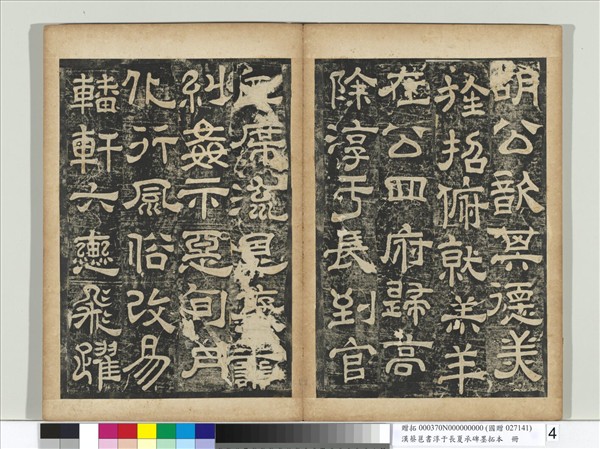 胡公歆其德美
旌招俯就羔羊
在公四府歸高
除淳于長到官
正席流恩褒譱
糾姦示惡旬月
化行風俗改易
轓軒六轡飛躍
贈拓 000370N000000000 (國贈 027141)
漢蔡邕書淳于長夏承碑墨拓本 冊
4